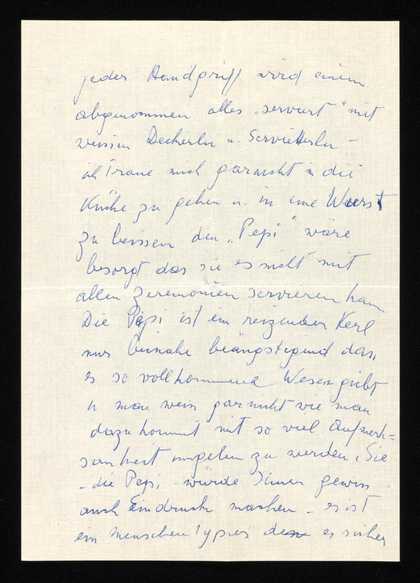 jeder Handgriff wird einem
abgenommen alles „serviert" mit
weissen Deckerln u. Servietterln –
ich traue mich garnicht in die
Küche zu gehen u. in eine Wurst
zu beissen den „Pepi" wäre
besorgt das sie es nicht mit
allen Zeremonien servieren kann
Die Pepi ist ein reizender Kerl
nur beinahe beängstigend dass
es so vollkommene Wesen giebt
u man weiss garnicht wie man
dazu kommt mit so viel Aufmerk-
samkeit umgeben zu werden. Sie
– die Pepi würde Ihnen gewiss
auch Eindruck machen – es ist
ein Menschentypus den es sicher